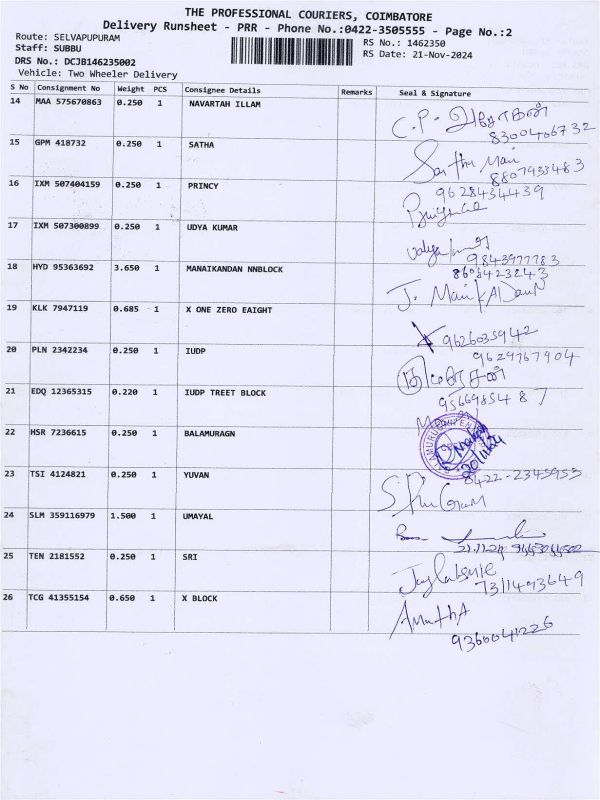 THE PROFESSIONAL COURIERS, COIMBATORE
Delivery Runsheet - PRR - Phone No.:0422-3505555 - Page No.:2
Route: SELVAPUPURAM
RS No.: 1462350
Staff: SUBBU
RS Date: 21-Nov-2024
DRS No.: DCJB146235002
Vehicle: Two Wheeler Delivery
S No Consignment No Weight PCS Consignee Details Remarks Seal & Signature
14 MAA 575670863 0.250 1 NAVARTAH ILLAM
C.P.
8300466732
15 GPM 418732 0.250 1 SATHA
8807933483
16 IXM 507404159 0.250 1 PRINCY
9628434439
17 IXM 507300899 0.250 1 UDYA KUMAR
9843977783
18 HYD 95363692 3.650 1 MANAIKANDAN NNBLOCK
8608423243
J.
19 KLK 7947119 0.685 1 X ONE ZERO EAIGHT
9626035942
20 PLN 2342234 0.250 1 IUDP
9629767904
21 EDQ 12365315 0.220 1 IUDP TREET BLOCK
9566985487
22 HSR 7236615 0.250 1 BALAMURAGN
8422-2345953
23 TSI 4124821 0.250 1 YUVAN
24 SLM 359116979 1.500 1 UMAYAL
21.11.24
25 TEN 2181552 0.250 1 SRI
7311493649
26 TCG 41355154 0.650 1 X BLOCK
9360041226